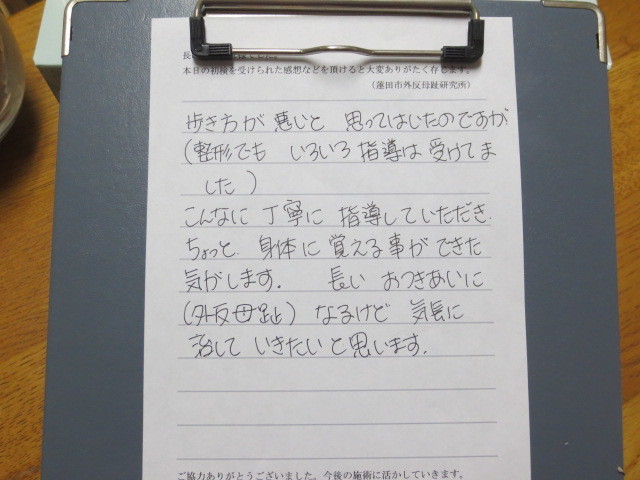 本日の初検を受けられた感想などを頂けると大変ありがたく存じます。
(蓮田市外反母趾研究所)
歩き方が悪いと 思ってはいたのですが
(整形でも いろいろ指導は受けてま
した)
こんなに丁寧に 指導していただき、
ちょっと、身体に覚える事ができた
気がします。 長い おつきあいに
(外反母趾) なるけど 気長に
治して いきたいと思います.
ご協力ありがとうございました。今後の施術に活かしていきます。